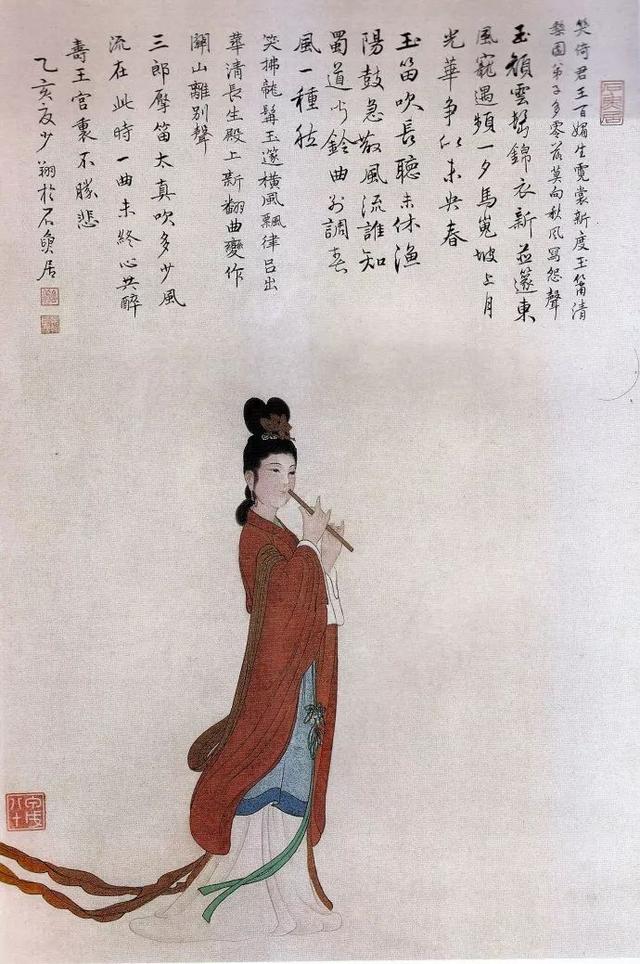 笑倚君王百媚生霓裳新度玉笛清
梨園弟子多零落莫向秋風寫怨聲
玉顏雲髻錦衣新並篴東
風寵遇頻一夕馬嵬坡上月
光華爭似未央春
玉笛吹長聽未休漁
陽鼓急散風流誰知
蜀道鈴曲別調春
風一種
笑拂龍髯玉篴橫風飄律呂出
華清長生殿上新翻曲變作
關山離別聲
三郎擪笛太真吹多少風
流在此時一曲未終心共醉
壽王宮裏不勝悲
乙亥夏少翔於石魚居
八十